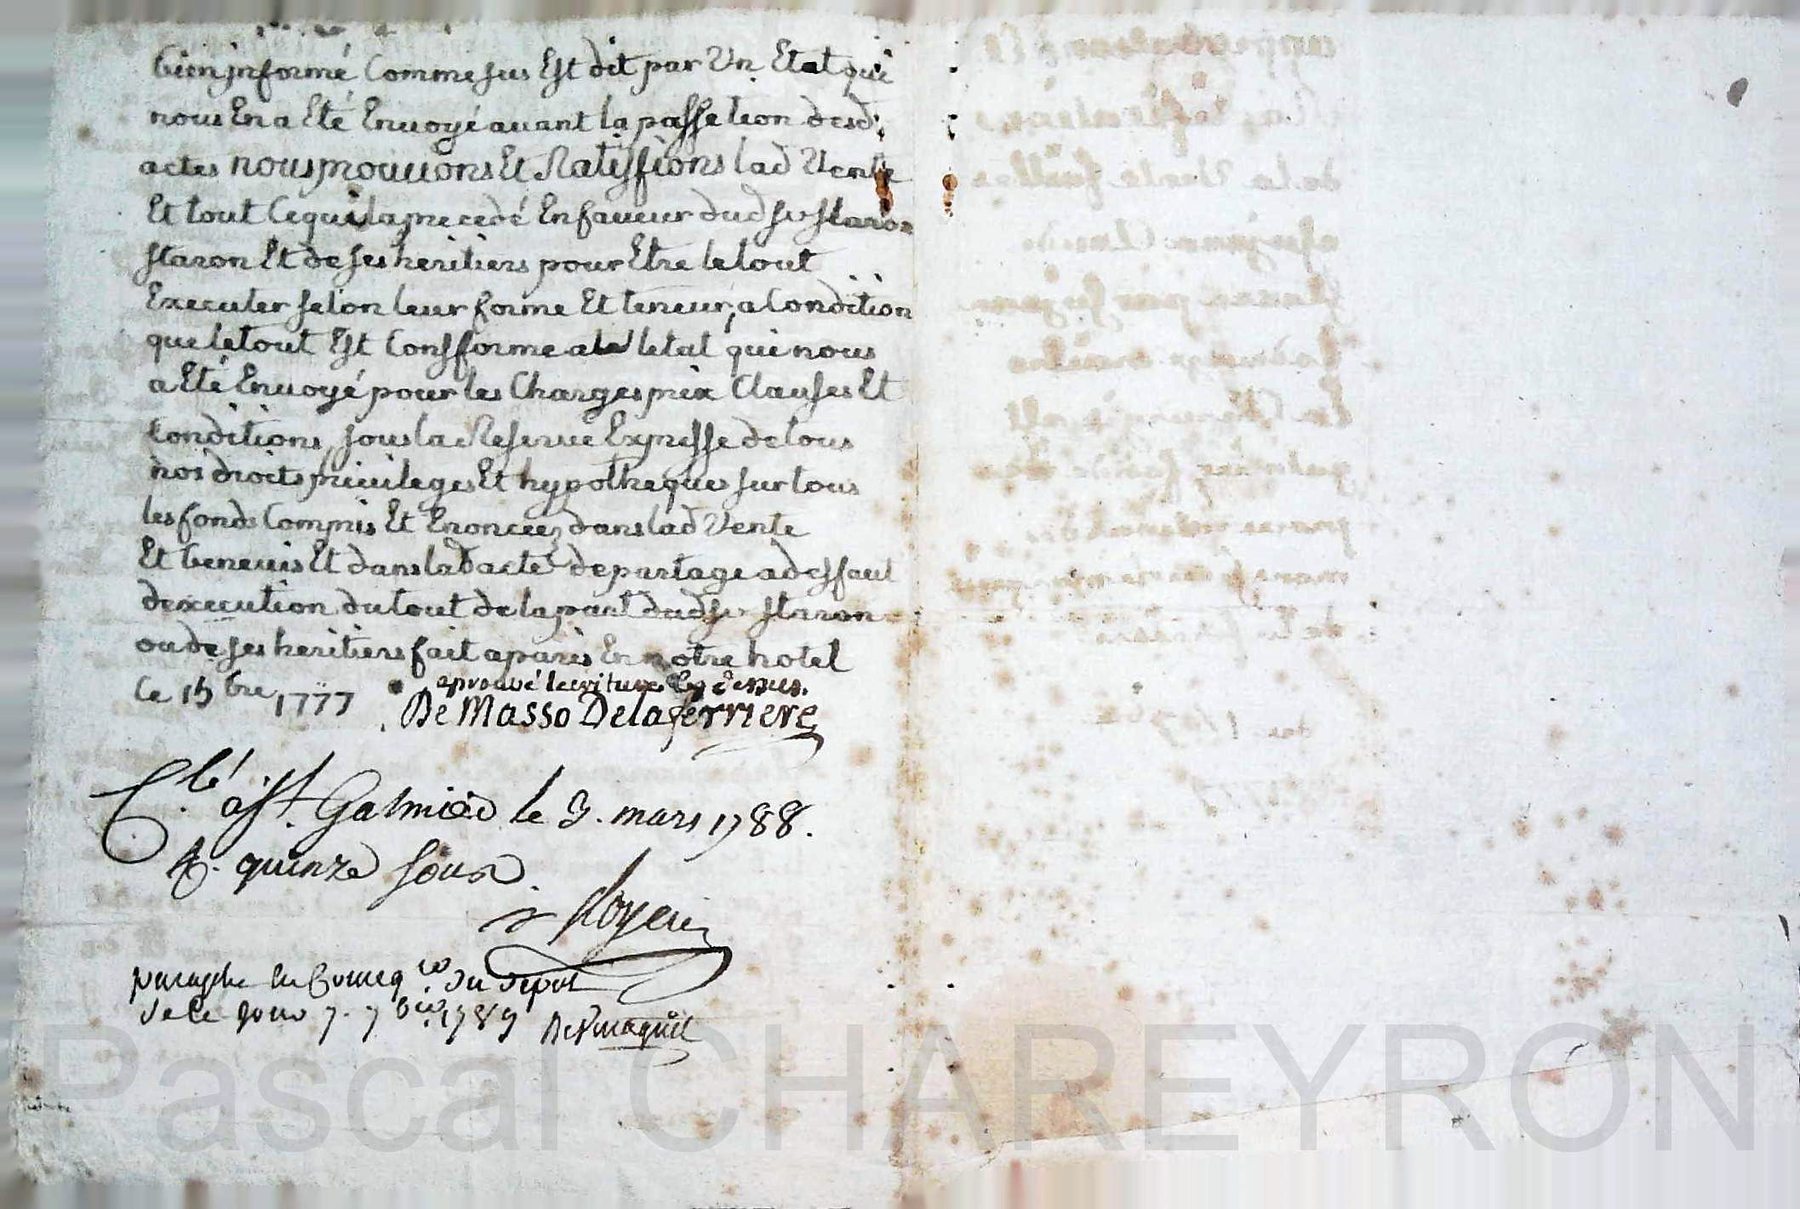 bien jnformé Comme sus Est dit par Un Etat qui
nous En a Eté Envoyé avant la passetion desd.
actes nous prouuons Et Ratiffions lad Vente
Et tout Ce qui la precedé En faveur dud sr staron
staron Et de ses heritiers pour Etre le tout
Executer selon leur forme Et teneur, a Condition
que le tout Est Consforme a letat qui nous
a Eté Envoyé pour les Charges prix Clauses Et
Conditions sous la Reserve Expresse de tous
nos droits privileges Et hypotheques sur tous
les fonds Compris Et Enoncées dans lad Vente
Et benevis Et dans lad acte de partage a desfaut
dexecution du tout de la part dud sr staron
ou de ses heritiers fait a paris En notre hotel
Ce 15 bre 1777
aprouvé lecriture cy dessus.
De Masso Delaferriere
C.lé a st. Galmier le 3. mars 1788.
R. quinze sous
Royer
paraphé du depot
de ce jour 7. 7bre 1789
Pascal CHAREYRON